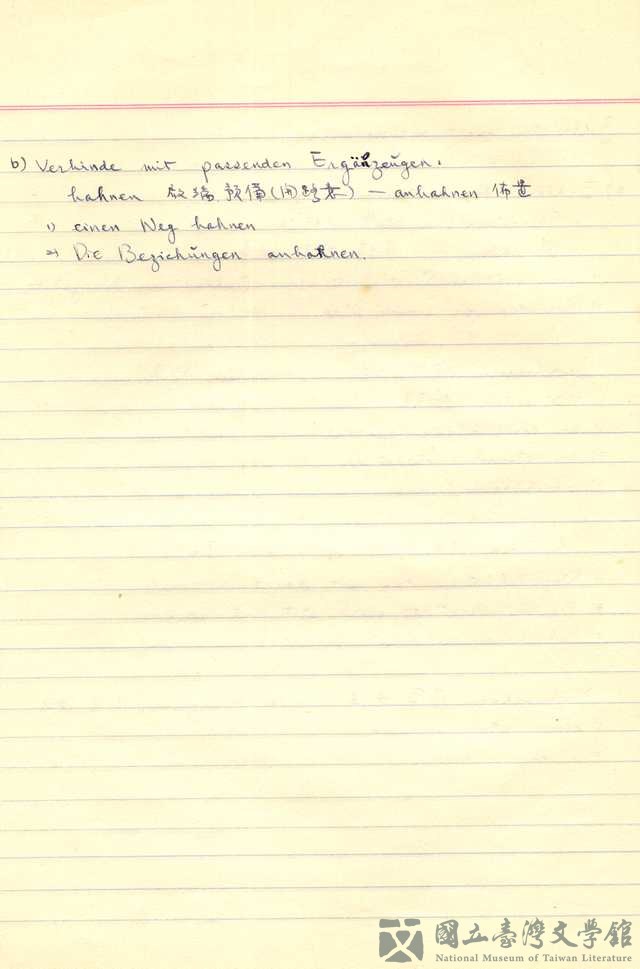 b) Verbinde mit passenden Ergänzungen.
bahnen 啟端 預備(開路者) — anbahnen 佈置
1) einen Weg bahnen
2) Die Beziehungen anbahnen.
國立臺灣文學館
National Museum of Taiwan Literature